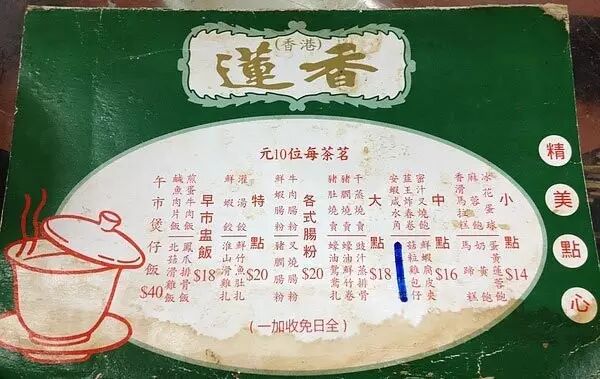 (香港)
蓮香
精美點心
茗茶每位10元
小點
$14
冰花蛋球
麻蓉飽
香滑馬拉糕
蛋黃蓮蓉飽
奶黃飽
馬蹄糕
中點
$16
蜜汁叉燒飽
韮王炸春卷
安蝦咸水角
鮮蝦腐皮夾
菇粒雞包仔
大點
$18
干蒸燒賣
豬膶燒賣
豬肚燒賣
豉汁蒸排骨
蠔油鮮竹卷
蠔油鴛鴦札
各式腸粉
$20
牛肉腸粉
鮮蝦腸粉
叉燒腸粉
豬膶腸粉
特點
$20
灌湯餃
鮮蝦餃
鮮竹魚肚札
淮山滑雞札
早市盅飯
$18
煎蛋牛肉飯
鹹魚肉片飯
鳳爪排骨飯
北菇滑雞飯
午市煲仔飯
$40
(全日免收加一)